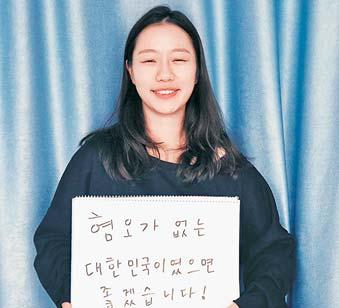 혐오가 없는
대한민국이였으면
좋겠습니다!